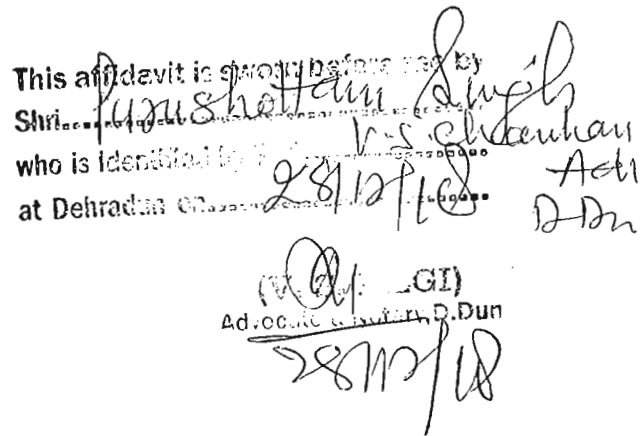 This affidavit is sworn before me by
Shri Purushottam Singh
who is identified by V.S. Chauhan
Adv
at Dehradun on 28/12/18 D.Dn
GI)
Advocate & Notary, D.Dun
28/12/18